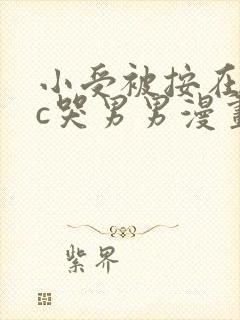 小受被按在
c哭男男漫畫
紫界